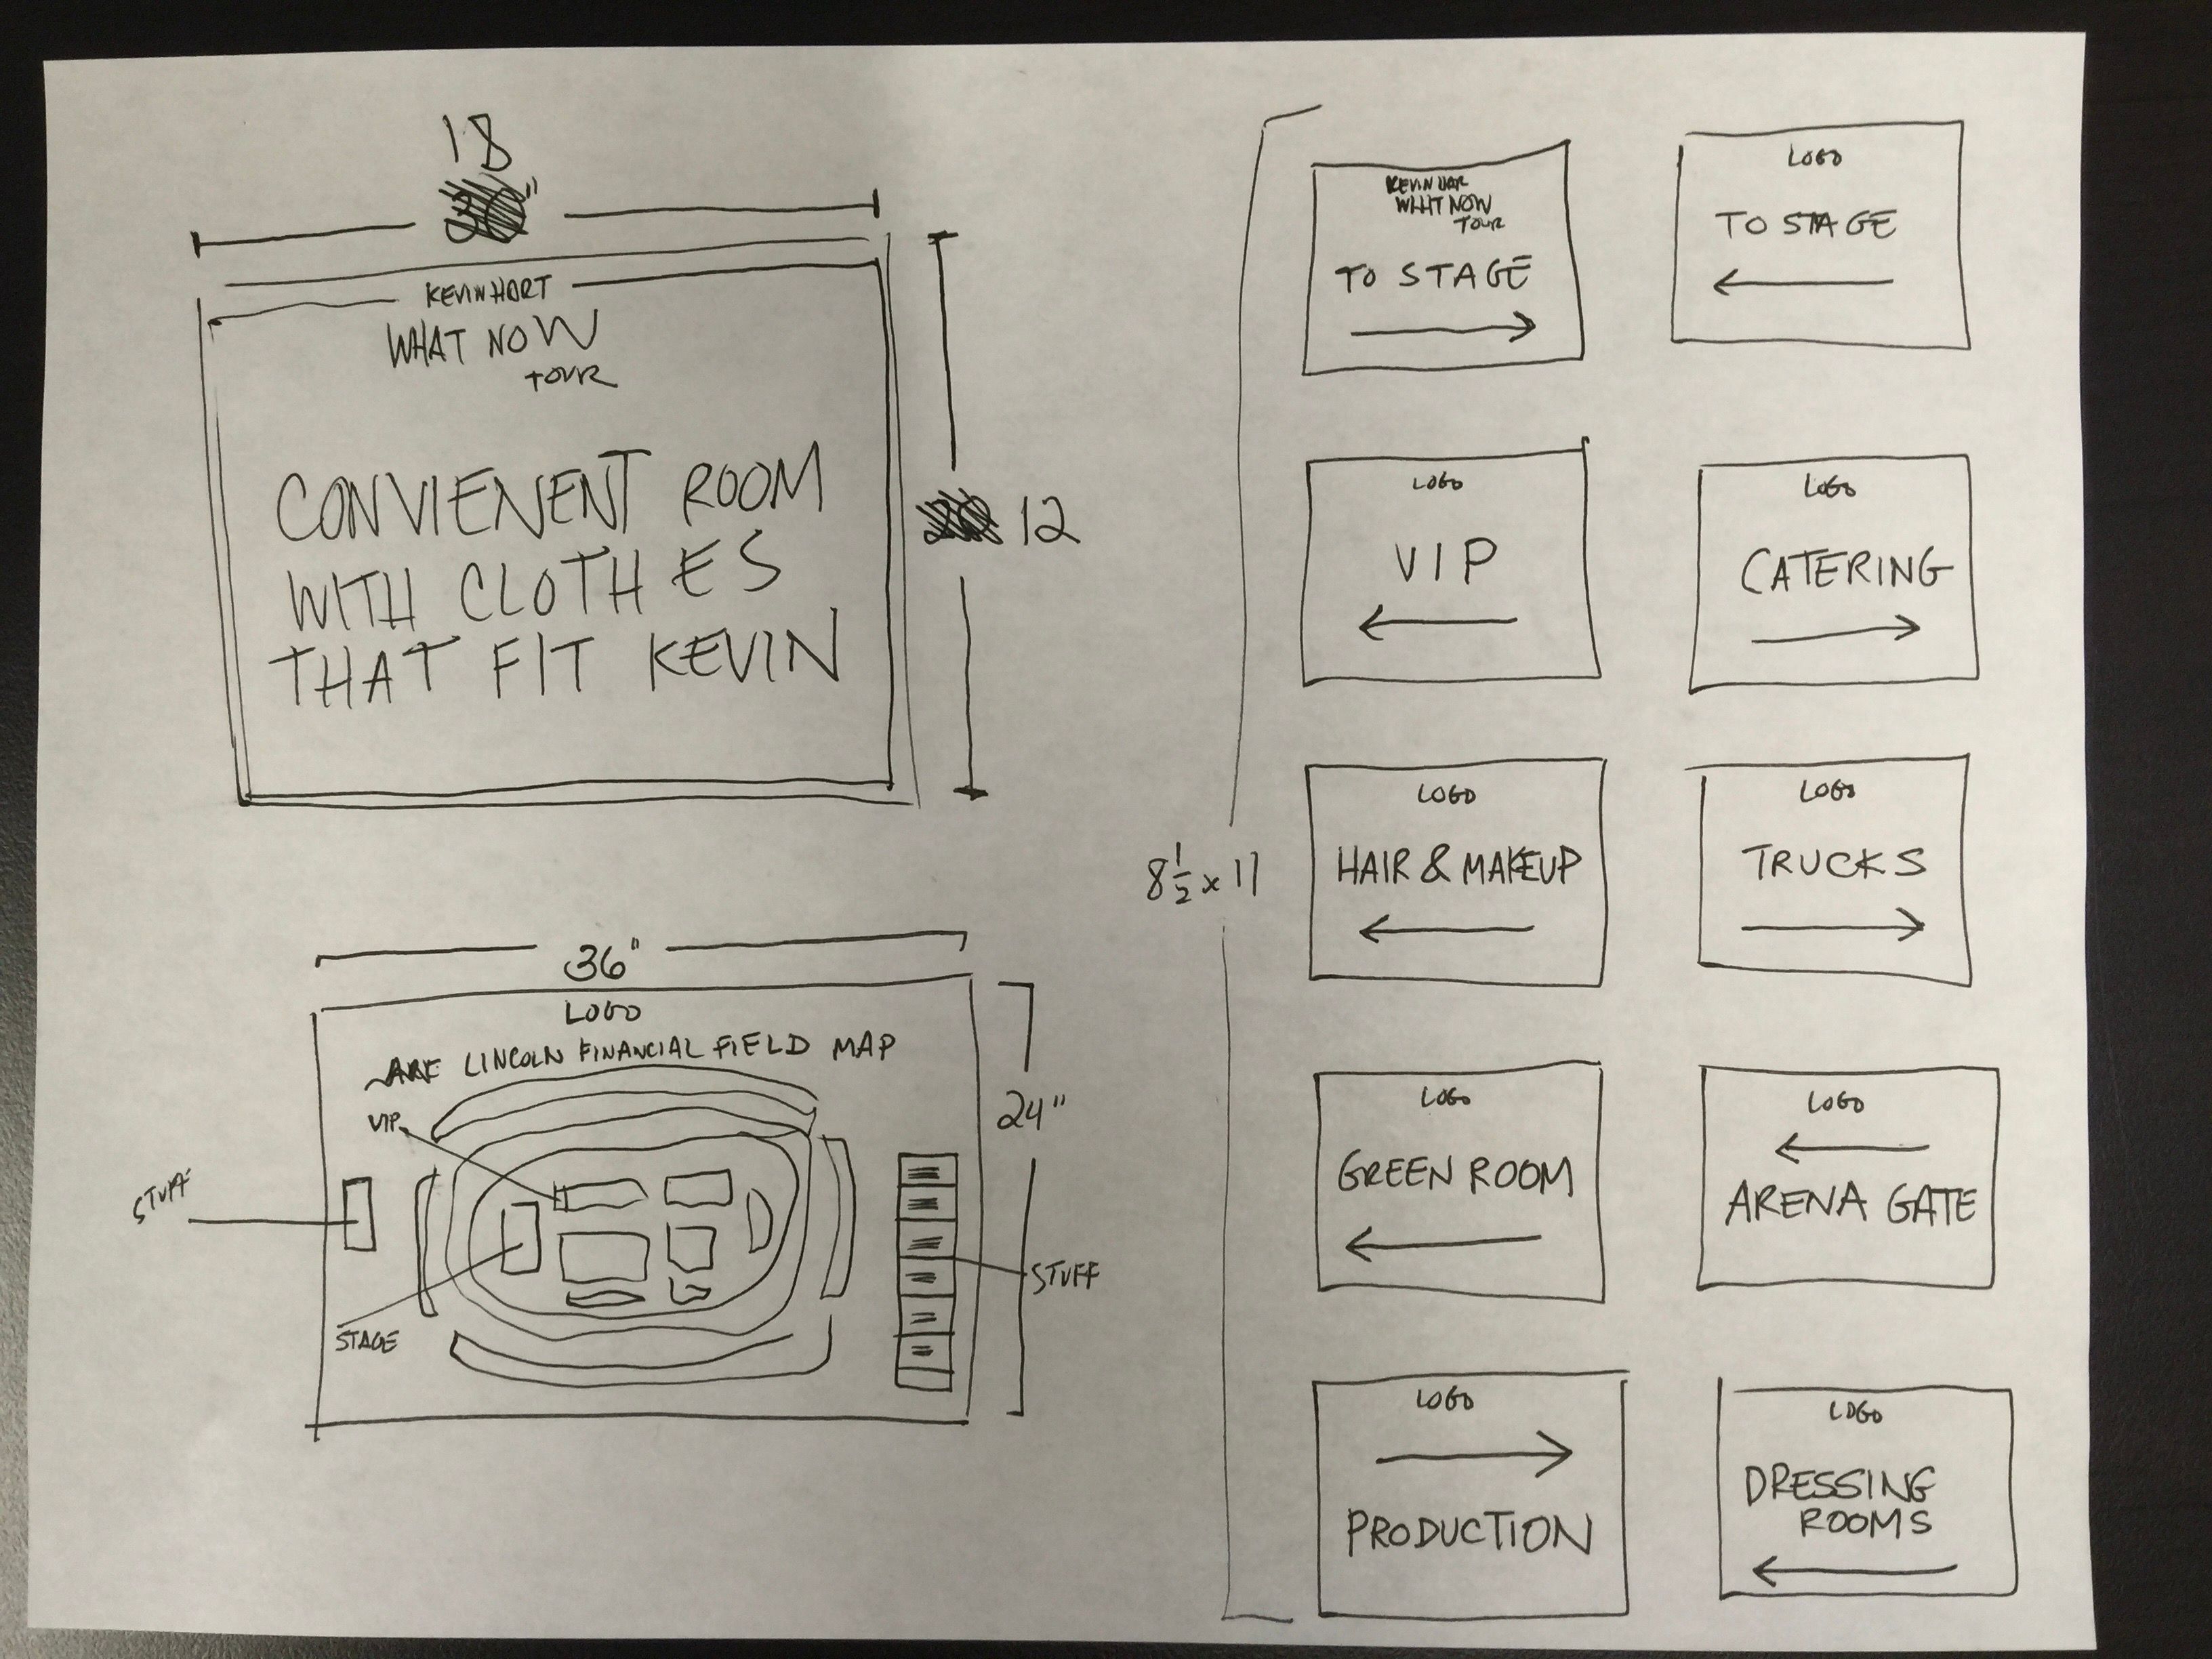 18
KEVIN HART
WHAT NOW
TOUR
CONVIENENT ROOM
WITH CLOTHES
THAT FIT KEVIN
12
36"
LOGO
LINCOLN FINANCIAL FIELD MAP
VIP
STUFF
STAGE
24"
STUFF
8 1/2 x 11
KEVIN HAR
WHAT NOW
TOUR
TO STAGE
LOGO
TO STAGE
LOGO
VIP
LOGO
CATERING
LOGO
HAIR & MAKEUP
LOGO
TRUCKS
LOGO
GREEN ROOM
LOGO
ARENA GATE
LOGO
PRODUCTION
LOGO
DRESSING
ROOMS